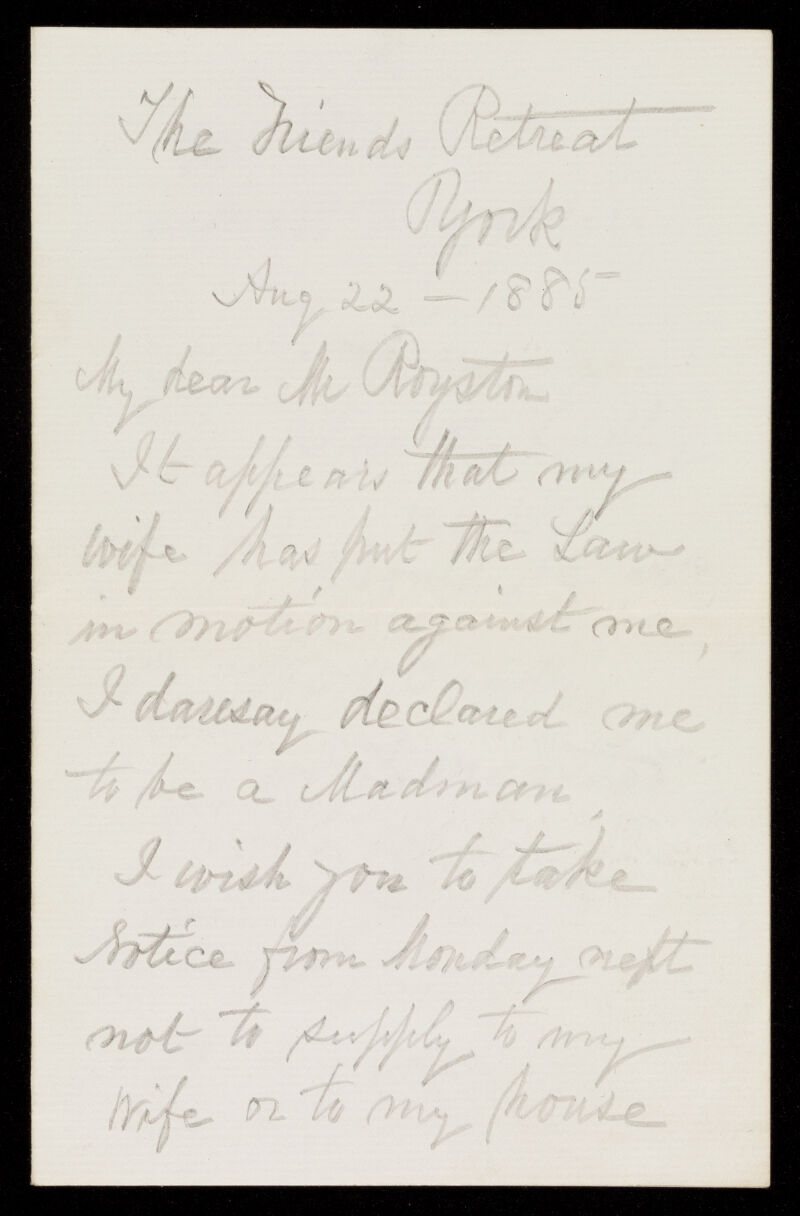 The Friends Retreat
York
Aug 22 – 1885
My dear Mr Royston
It appears that my
wife has put the Law
in motion against me,
I daresay declared me
to be a Madman.
I wish you to take
Notice from Monday next
not to supply to my
wife or to my house